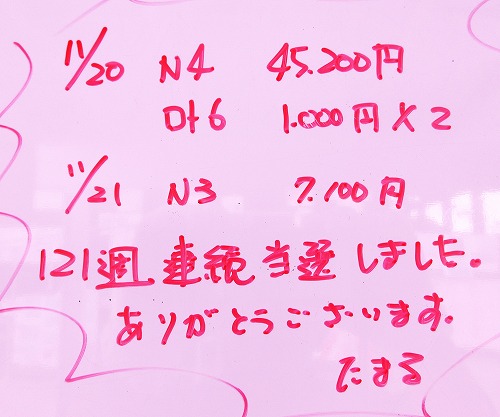 11/20 N4 45.200円
ロト6 1.000円×2
11/21 N3 7.100円
121週連続当選しました。
ありがとうございます。
たまる